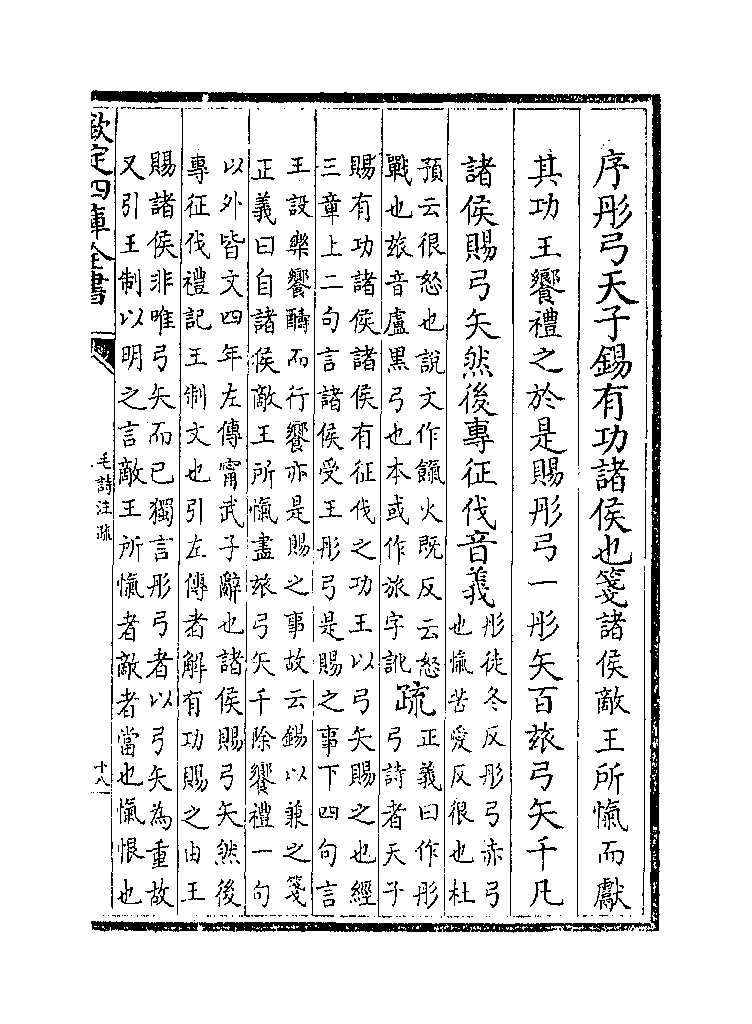 序彤弓天子錫有功諸侯也箋諸侯敵王所愾而獻
其功王饗禮之於是賜彤弓一彤矢百玈弓矢千凡
諸侯賜弓矢然後專征伐音義
彤徒冬反彤弓赤弓
也愾苦愛反很也杜
預云很怒也說文作鎎火既反云怒
戰也玈音盧黑弓也本或作旅字訛
疏
正義曰作彤
弓詩者天子
賜有功諸侯諸侯有征伐之功王以弓矢賜之也經
三章上二句言諸侯受王彤弓是賜之事下四句言
王設樂饗醻而行饗亦是賜之事故云錫以兼之箋
正義曰自諸侯敵王所愾盡玈弓矢千除饗禮一句
以外皆文四年左傳甯武子辭也諸侯賜弓矢然後
專征伐禮記王制文也引左傳者解有功賜之由王
賜諸侯非唯弓矢而已獨言彤弓者以弓矢為重故
又引王制以明之言敵王所愾者敵者當也愾恨也
欽定四庫全書
毛詩注疏
十八